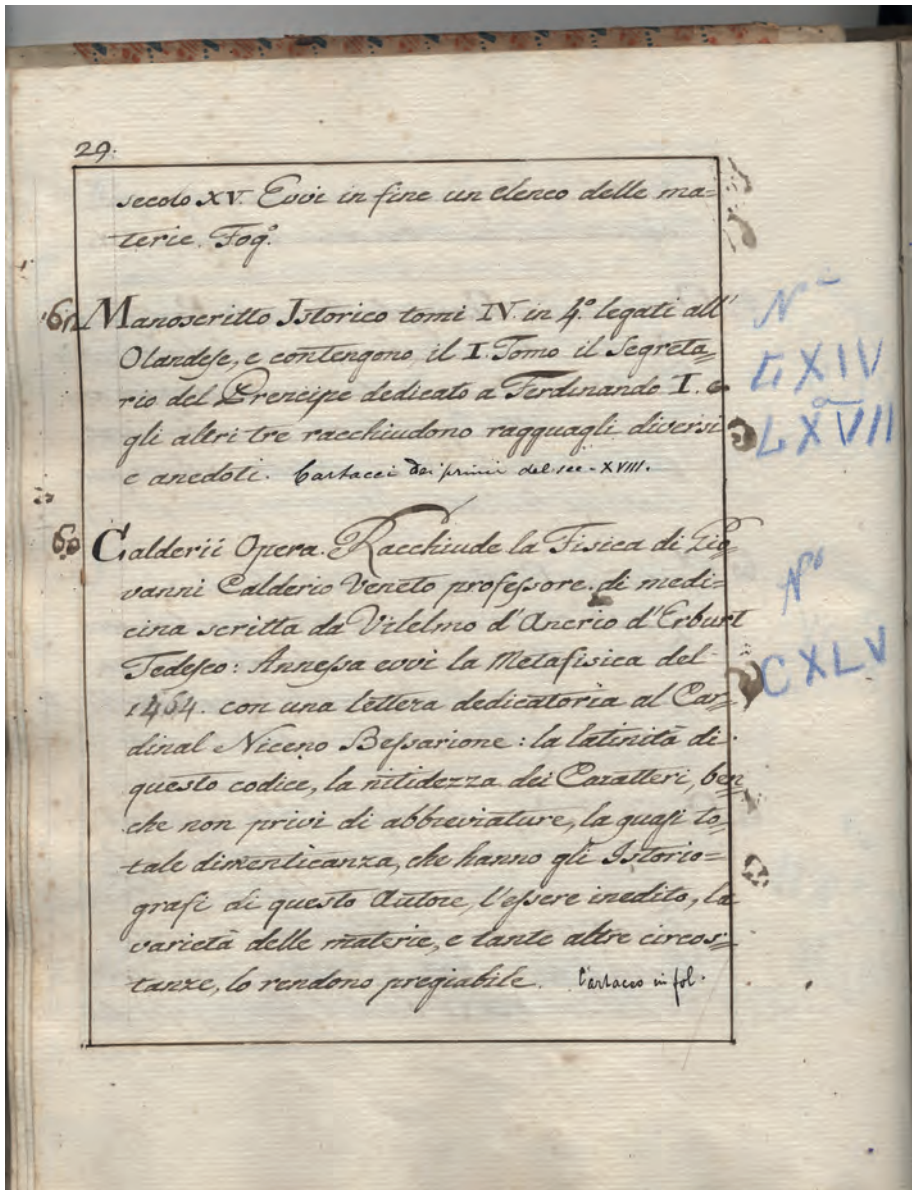 29.
secolo XV. Evvi in fine un elenco delle ma=
terie. Fog.º
Manoscritto Istorico tomi IV. in 4.º legati all'
Olandese, e contengono il I. Tomo il Segreta=
rio del Prencipe dedicato a Ferdinando I. e
gli altri tre racchiudono ragguagli diversi
e anedoti. Cartacei dei primi del sec. XVIII.
Nⁱ
LXIV
a
LXVII
60
Calderii Opera. Racchiude la Fisica di Gio=
vanni Calderio Veneto professore di medi=
cina scritta da Vilelmo d'Ancrio d'Erburt
Tedesco: Annessa evvi la Metafisica del
1464. con una lettera dedicatoria al Car=
dinal Niceno Bessarione: la latinità di
questo codice, la nitidezza dei Caratteri, ben
che non privi di abbreviature, la quasi to=
tale dimenticanza, che hanno gli Istorio=
grafi di questo Autore, l'essere inedito, la
varietà delle materie, e tante altre circos=
tanze, lo rendono pregiabile. Cartaceo in fol.
Nº
CXLV